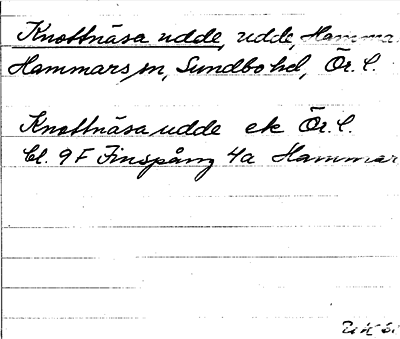 Knottnäsa udde, udde, Hammar
Hammars sn, Sundbo hd, Ör. l.
Knottnäsa udde ek Ör. l.
bl. 9F Finspång 4a Hammar